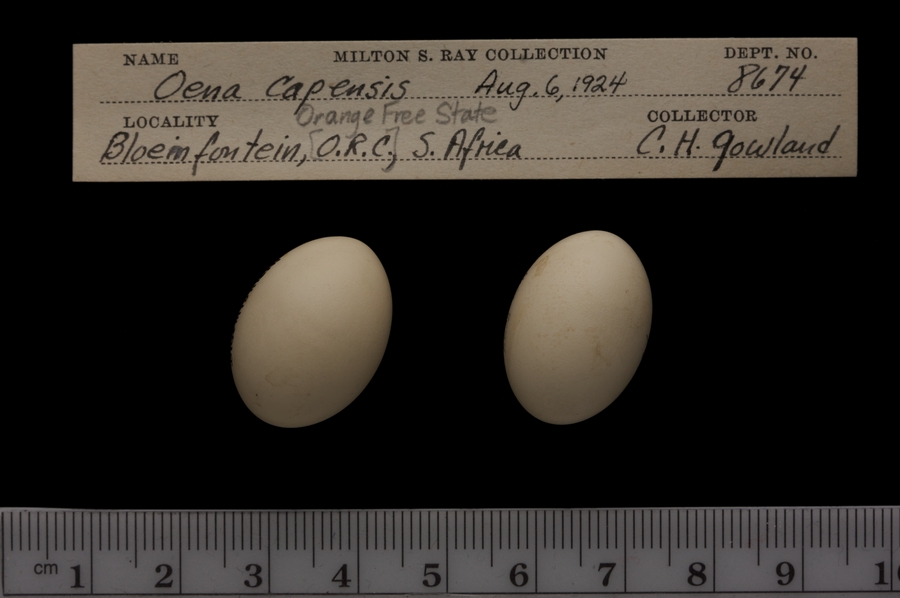 NAME MILTON S. RAY COLLECTION DEPT. NO.
Oena capensis Aug. 6, 1924 8674
Orange Free State
LOCALITY COLLECTOR
Bloemfontein, [O.R.C.], S. Africa C. H. Gowland
cm 1 2 3 4 5 6 7 8 9 1